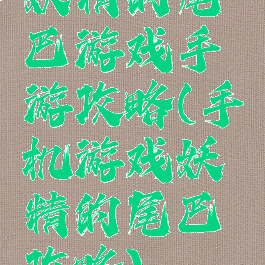 妖精的尾
巴游戏手
游攻略(手
机游戏妖
精的尾巴
攻略)